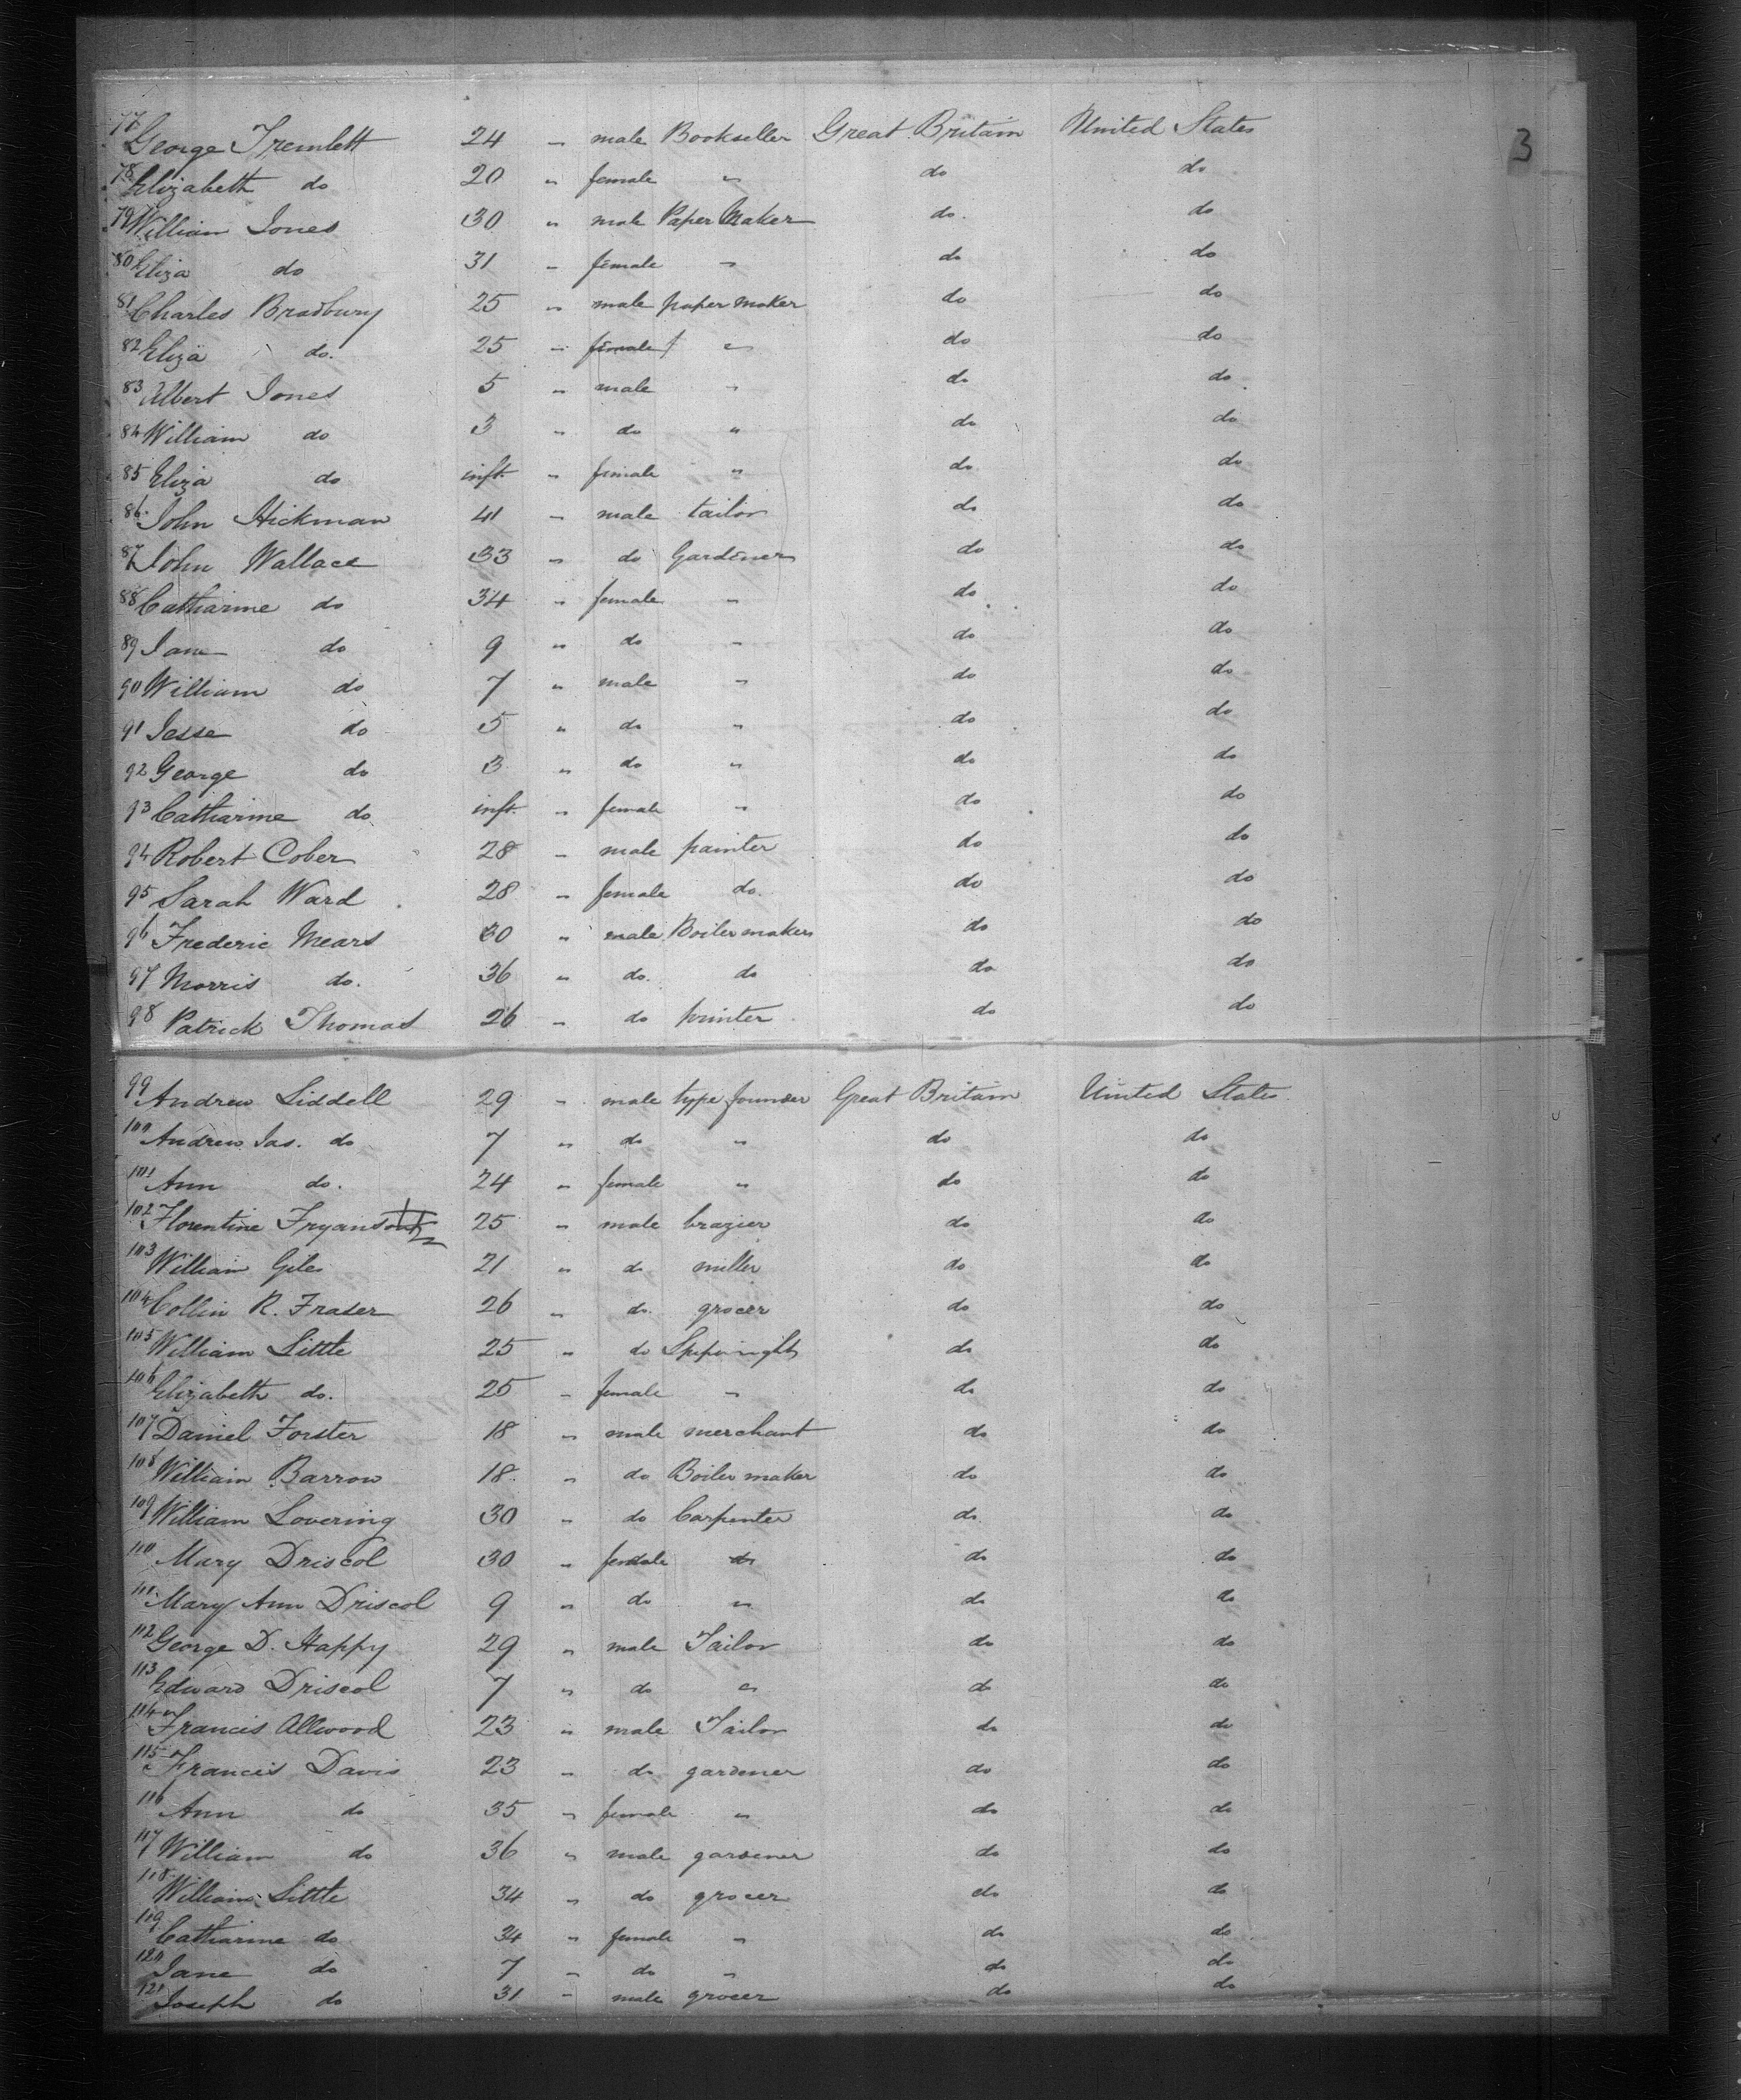 3
77 George Tremlett 24 " male Bookseller Great Britain United States
78 Elizabeth do 20 " female " do do
79 William Jones 30 " male Paper Maker do. do
80 Eliza do 31 " female " do do
81 Charles Bradbury 25 " male paper maker do do
82 Eliza do. 25 " female " do do
83 Albert Jones 5 " male " do do
84 William do 3 " do " do do
85 Eliza do inft. " female " do do
86 John Hickman 41 " male tailor do do
87 John Wallace 33 " do Gardener do do
88 Catharine do 34 " female " do do
89 Jane do 9 " do " do do
90 William do 7 " male " do do
91 Jesse do 5 " do " do do
92 George do 3 " do " do do
93 Catharine do inft. " female " do do
94 Robert Cober 28 " male painter do do
95 Sarah Ward 28 " female do. do do
96 Frederic Mears 30 " male Boiler maker do do
97 Morris do. 36 " do. do do do
98 Patrick Thomas 26 " do printer do do
99 Andrew Liddell 29 " male type founder Great Britain United States
100 Andrew Jas. do 7 " do " do do
101 Ann do. 24 " female " do do
102 Florentine 25 " male brazier do do
103 William Giles 21 " do miller do do
104 Collin R. Fraser 26 " do. grocer do do
105 William Little 25 " do do do
106 Elizabeth do. 25 " female " do do
107 Daniel Forster 18 " male merchant do do
108 William Barrow 18 " do Boiler maker do do
109 William Lovering 30 " do Carpenter do do
110 Mary Driscol 30 " female do do do
111 Mary Ann Driscol 9 " do " do do
112 George D. Happy 29 " male Tailor do do
113 Edward Driscol 7 " do " do do
114 Francis Allwood 23 " male Tailor do do
115 Francis Davis 23 " do gardener do do
116 Ann do 35 " female " do do
117 William do 36 " male gardener do do
118 William Little 34 " do grocer do do
119 Catharine do 34 " female " do do
120 Jane do 7 " do " do do
121 Joseph do 31 " male grocer do do